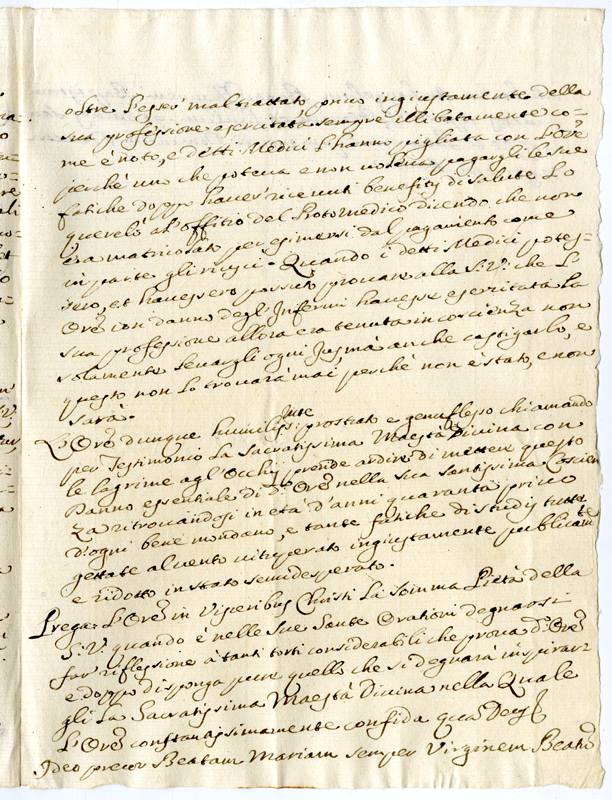 oltre l'esser maltrattato privo ingiustamente della
sua professione esercitata sempre illibatamente co-
me è noto, e detti Medici l'hanno pigliata con l'Orē
perche uno che poteva e non voleva pagargli le sue
fatiche doppo haver ricevuti benefitij di salute Lo
querelò al'offitio del Protomedico dicendo che non
era matricolato per esimersi dal pagamento come
in parte gli riuscì. Quando i detti Medici potes-
sero, et havessero possuto provare alla S.V. che L
Orē con danno degl'Infermi havesse esercitata La
sua professione allora era tenuta in coscienza non
solamente levargli ogni Jus mà anche castigarlo, e
questo non Lo trovarà mai perche non è stato, e non
sarà.
L'Orē dunque humiliss:mte prostrato e genuflesso chiamando
per Testimonio La Sacratissima Maestà Divina con
le lagrime agl'Occhi prende ardire di mettere questo
Danno essentiale di d.° Orē nella sua Santissima Coscien
za ritrovandosi in età d'anni quaranta privo
d'ogni bene mondano, e tante fatiche di studij tutte
gettate al vento vituperato ingiustamente publicamte
e ridotto in stato semidesperato.
Prega L'Orē in Visceribus Christi La Somma Pietà della
S.V. quando è nelle sue Sante Orationi degnarsi
far riflessione à tanti torti considerabili che prova d.° Orē
e doppo disponga pure quello che si degnarà inspirar
gli La Sacratissima Maestà Divina nella Quale
L'Orē constantissimamente confida
Ideo precor Beatam Mariam semper Virginem